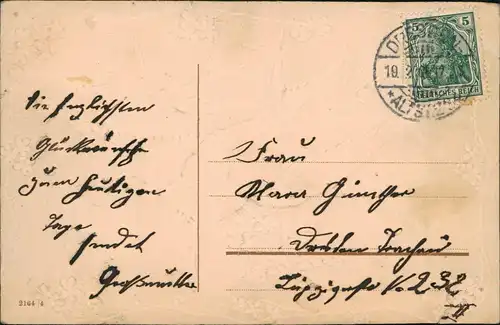 Die herzlichsten
Glückwünsche
zum heutigen
Tage
sendet
Großmutter
2164/4
Frau
Mara Günther
Dresden Trachau
Leipzigerstr No 232
II
5 5
DEUTSCHES REICH
DRESDEN
ALTSTADT